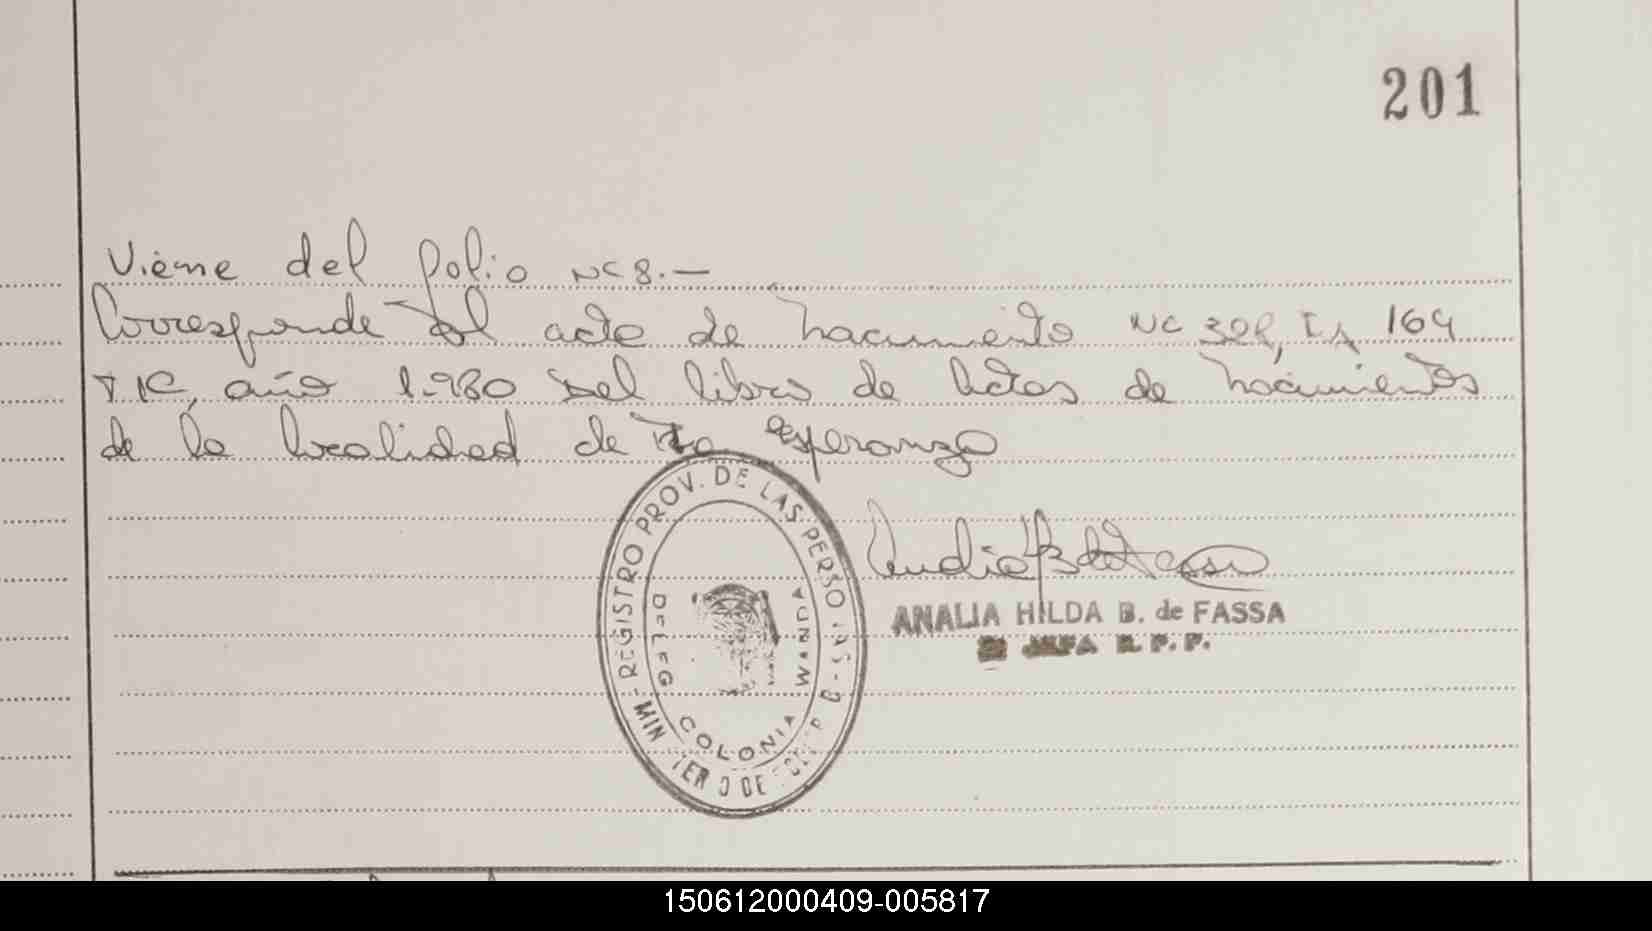 201
Viene del folio Nº 8.—
Corresponde al acta de nacimiento Nº 308, Fº 164
Tº, año 1.980 del libro de Actas de nacimientos
de la localidad de Esperanza
REGISTRO PROV. DE LAS PERSONAS
DELEG
COLONIA WANDA
ANALIA HILDA B. de FASSA
JEFA R. P. P.
150612000409-005817